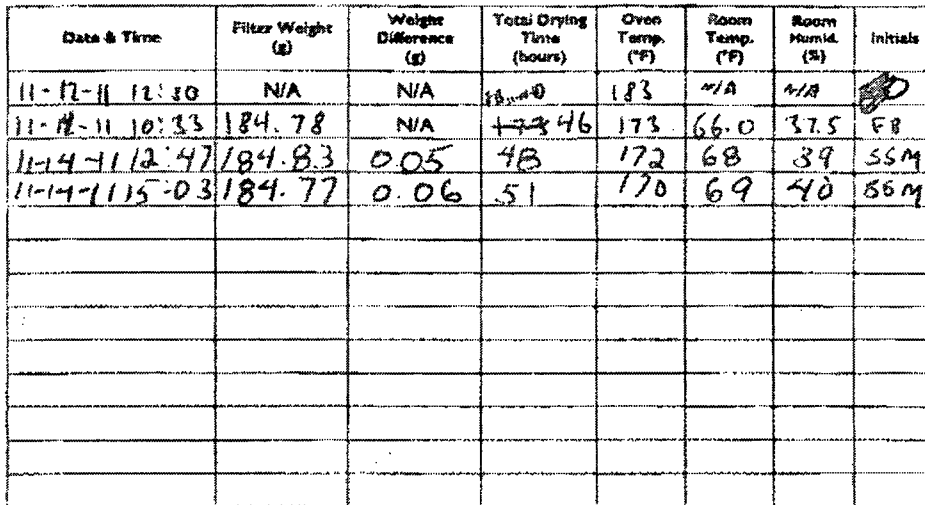 Date & Time Filter Weight (g) Weight Difference (g) Total Drying Time (hours) Oven Temp. (°F) Room Temp. (°F) Room Humid. (%) Initials
11-12-11 12:30 N/A N/A 0 183 N/A N/A
11-12-11 10:33 184.78 N/A 46 173 66.0 37.5 FB
11-14-11 12:47 184.83 0.05 48 172 68 39 SSM
11-14-11 15:03 184.77 0.06 51 170 69 40 SSM